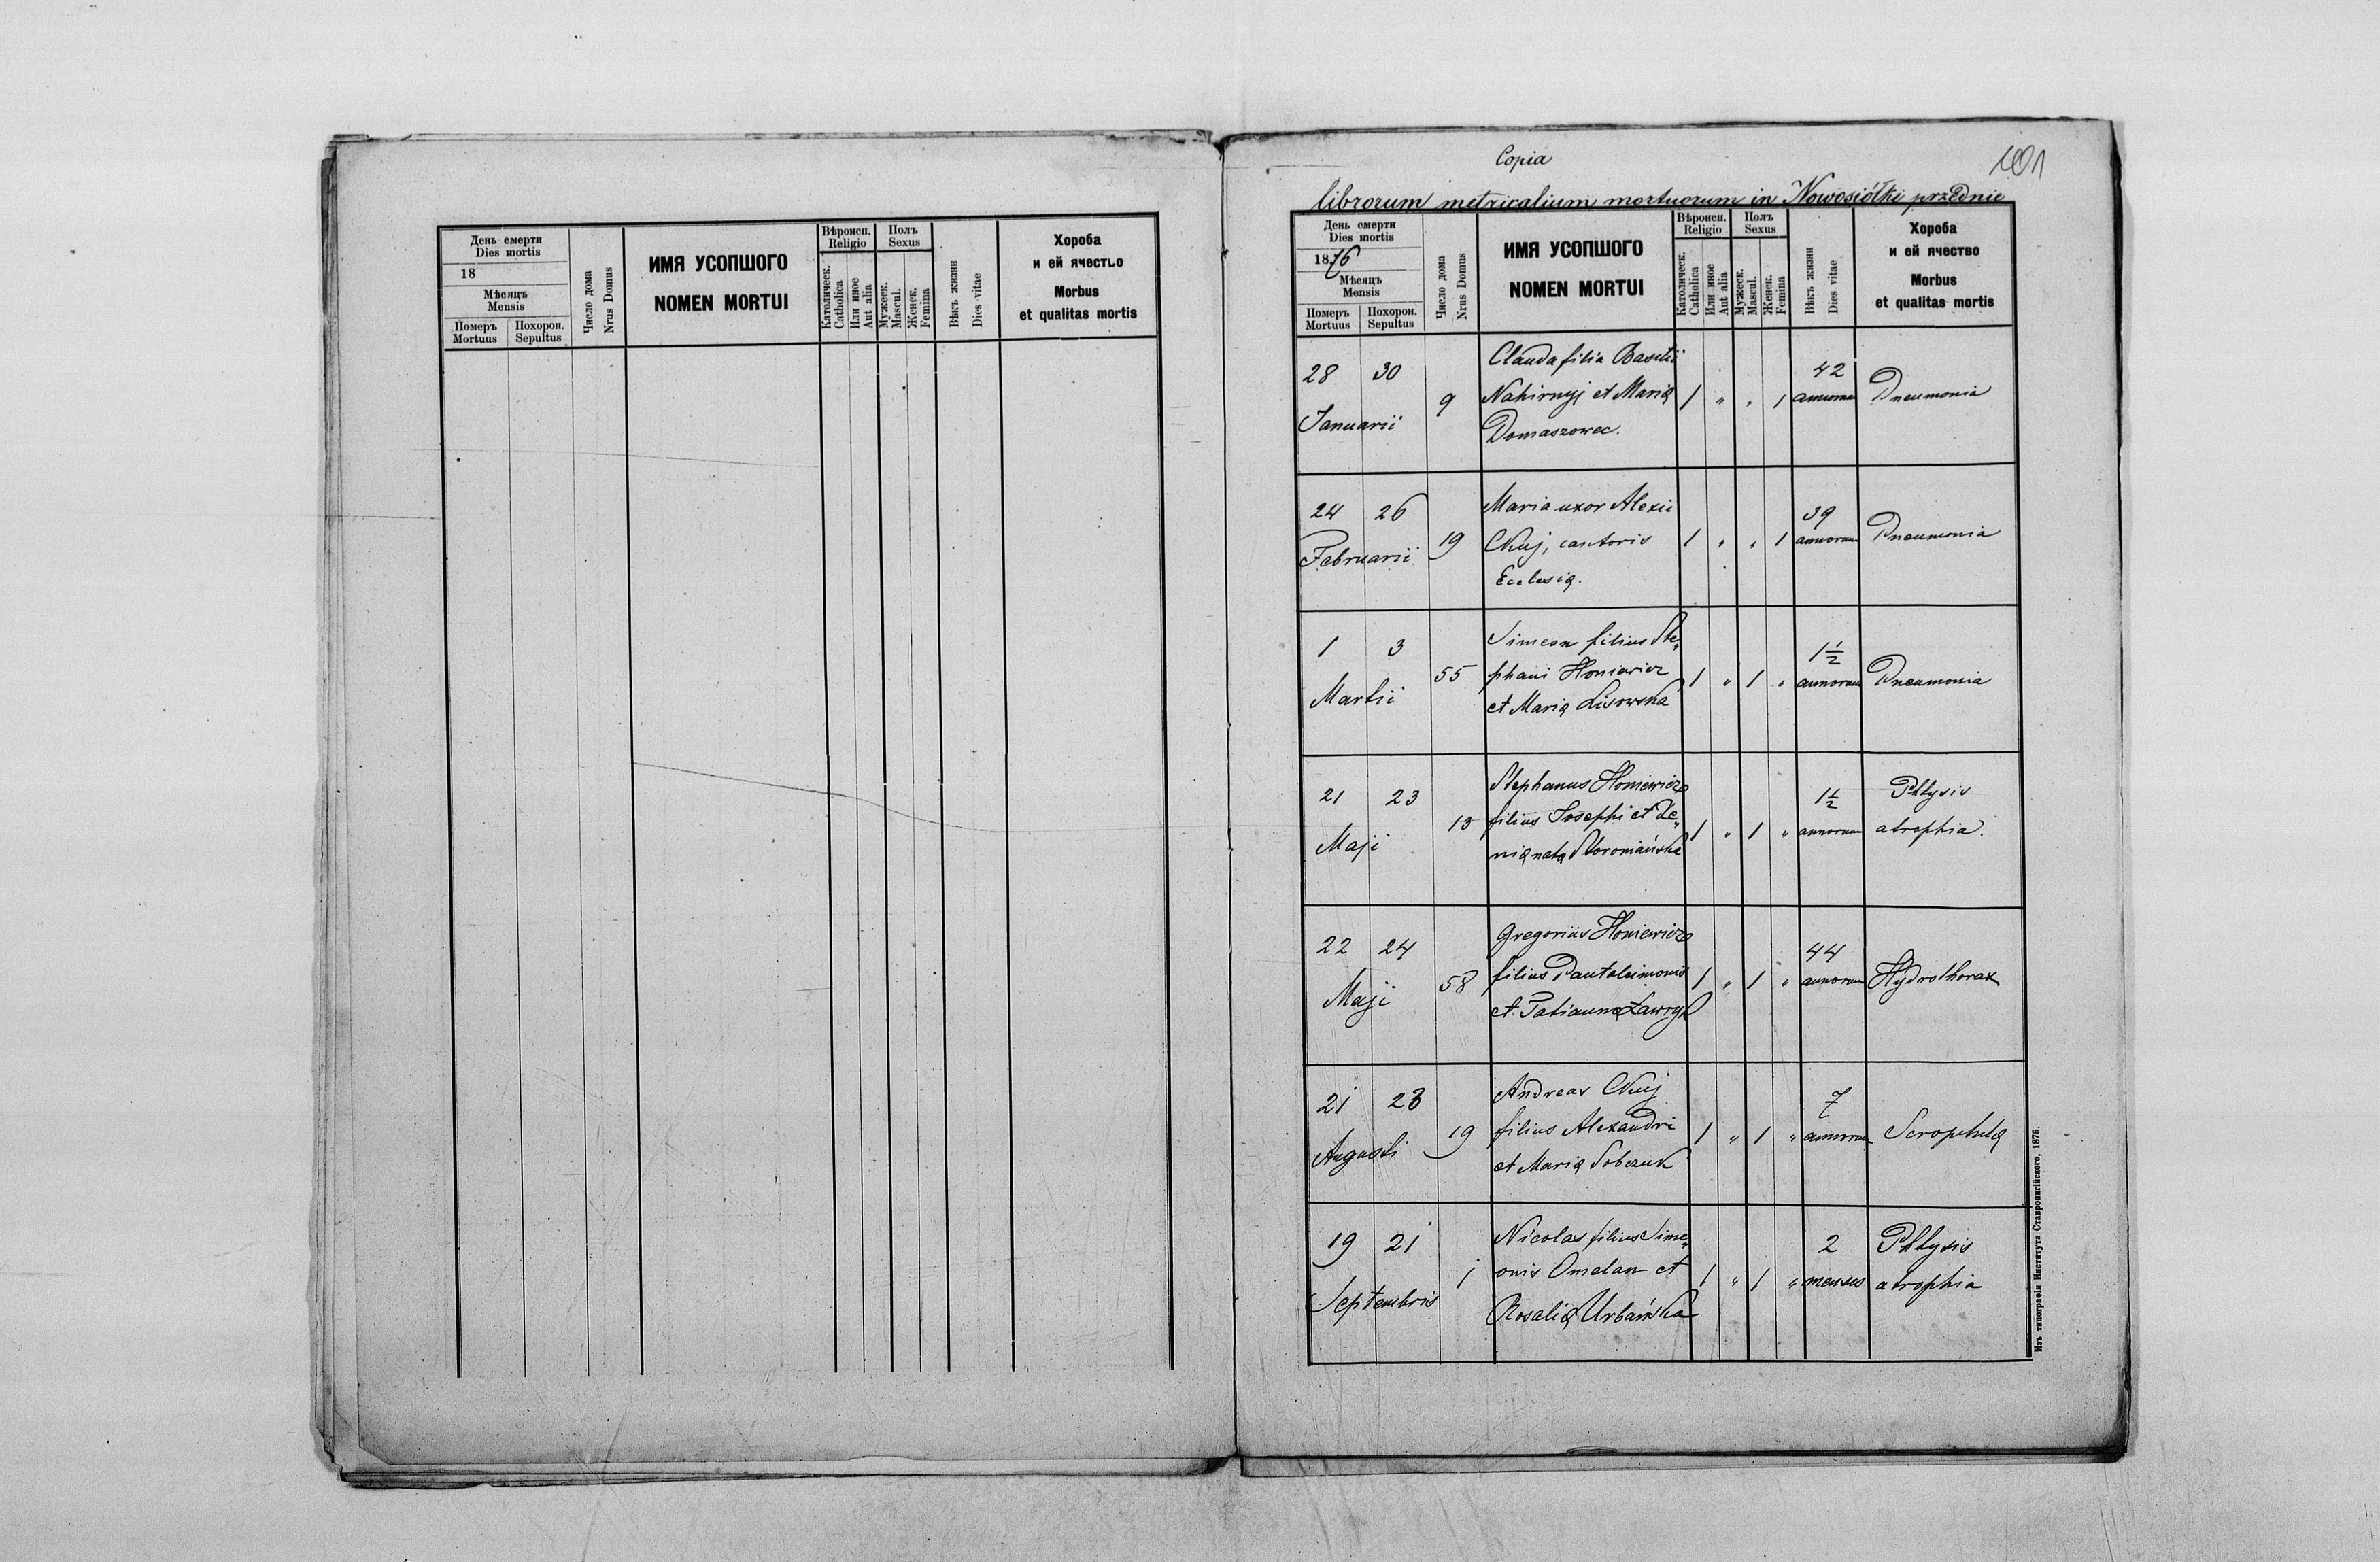 День смерти
Dies mortis
18
Мѣсяцъ
Mensis
Померъ
Mortuus
Похорон.
Sepultus
Число дома
Nrus Domus
ИМЯ УСОПШОГО
NOMEN MORTUI
Вѣроисп.
Religio
Католическ.
Catholica
Или иное
Aut alia
Полъ
Sexus
Мужеск.
Mascul.
Женск.
Femina
Вѣкъ жизни
Dies vitae
Хороба
и ей ячество
Morbus
et qualitas mortis
Copia
101
librorum metricalium mortuorum in Nowosiółki przednie
День смерти
Dies mortis
1876
Мѣсяцъ
Mensis
Померъ
Mortuus
Похорон.
Sepultus
Число дома
Nrus Domus
ИМЯ УСОПШОГО
NOMEN MORTUI
Вѣроисп.
Religio
Католическ.
Catholica
Или иное
Aut alia
Полъ
Sexus
Мужеск.
Mascul.
Женск.
Femina
Вѣкъ жизни
Dies vitae
Хороба
и ей ячество
Morbus
et qualitas mortis
28 30
Januarii
9
Clauda filia Basilii
Nahirnyj et Marią
Domaszowec.
1 " " 1
42
annorum
Pneumonia
24 26
Februarii
19
Maria uxor Alexii
Ckuj, cantoris
Ecclesią.
1 " " 1
39
annorum
Pneumonia
1 3
Martii
55
Simeon filius Ste„
phani Honiewicz
et Marią Lisowska
1 " 1 "
1 1/2
annorum
Pneumonia
21 23
Maji
13
Stephanus Honiewicz
filius Josephi et Xe„
nią natą Storoniańska
1 " 1 "
1 1/2
annorum
Phtysis
atrophia.
22 24
Maji
58
Gregorius Honiewicz
filius Pantaleimonis
et Tatianną Ławryk
1 " 1 "
44
annorum
Hydrothorax
21 23
Augusti
19
Andreas Ckuj
filius Alexandri
et Marią Sobczuk
1 " 1 "
7
annorum
Scrophulą
19 21
Septembris
1
Nicolas filius Sime„
onis Omelan et
Rosalią Urbańska
1 " 1 "
2
menses
Phtysis
atrophia
Изъ типографіи Института Ставропигійского, 1876.